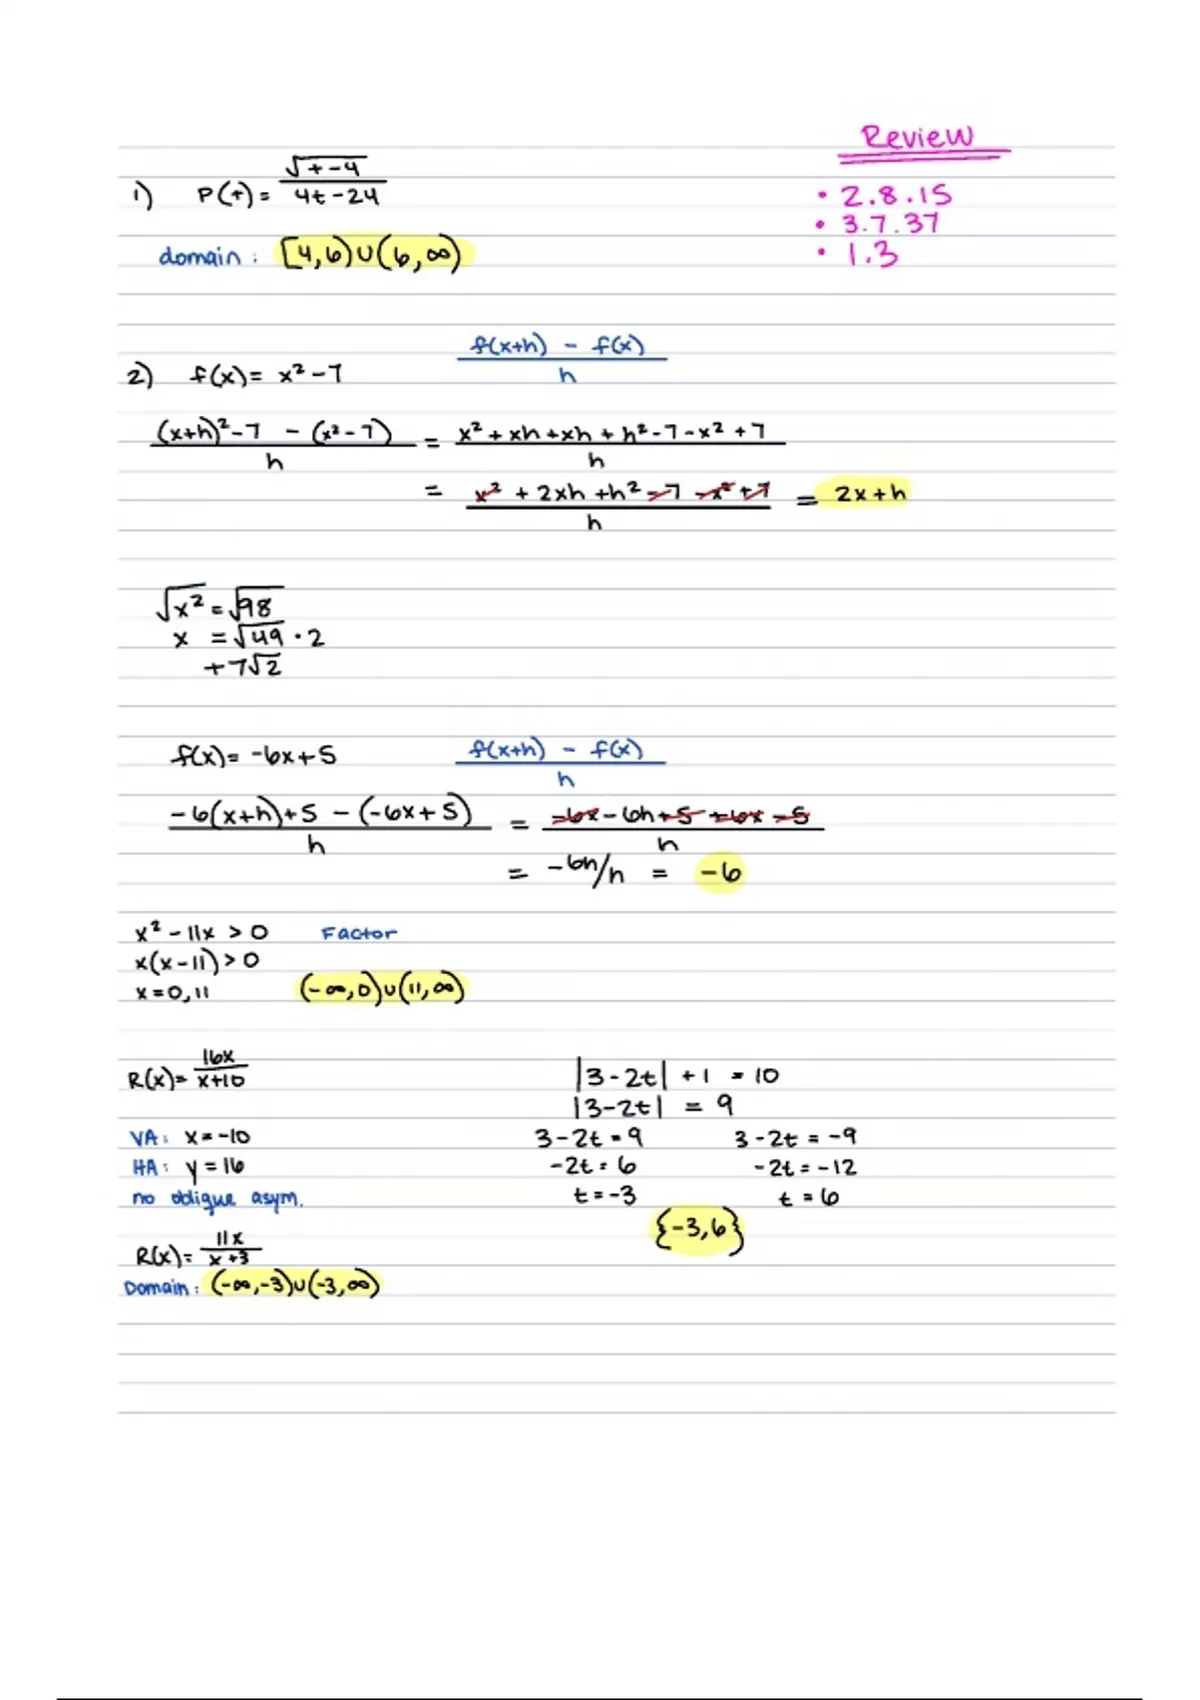 Review
• 2.8.15
• 3.7.37
• 1.3
1) P(t) = √t-4 / 4t-24
domain: [4,6)∪(6,∞)
2) f(x) = x²-7
f(x+h) - f(x) / h
(x+h)²-7 - (x²-7) / h = x²+xh+xh+h²-7-x²+7 / h
= x²+2xh+h²-7-x²+7 / h = 2x+h
√x² = √98
x = √49·2
+7√2
f(x) = -6x+5
f(x+h) - f(x) / h
-6(x+h)+5 - (-6x+5) / h = -6x-6h+5+6x-5 / h
= -6h/h = -6
x²-11x > 0 Factor
x(x-11) > 0
x=0,11 (-∞,0)∪(11,∞)
R(x) = 16x / x+10
VA: x=-10
HA: y=16
no oblique asym.
R(x) = 11x / x+3
Domain: (-∞,-3)∪(-3,∞)
|3-2t| + 1 = 10
|3-2t| = 9
3-2t=9 3-2t=-9
-2t=6 -2t=-12
t=-3 t=6
{-3,6}